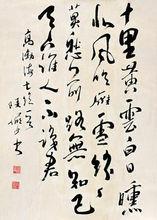 十里黃雲白日曛
北風吹雁雪紛紛
莫愁前路無知己
天下誰人不識君
高渤海七絕
陸儼少書